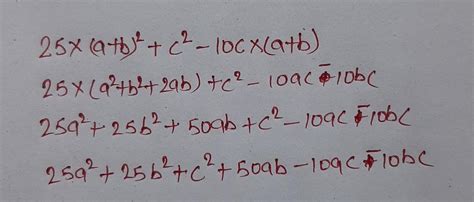 25×(a+b)²+c²-10c×(a+b)
25×(a²+b²+2ab)+c²-10ac-10bc
25a²+25b²+50ab+c²-10ac-10bc
25a²+25b²+c²+50ab-10ac-10bc